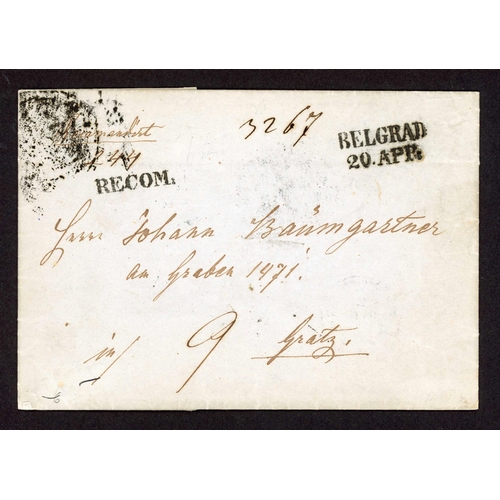 3267
BELGRAD
20. APR.
Recommandirt
244
RECOM.
Herrn Johann Baumgartner
am Graben 1471.
in 9 Grätz.